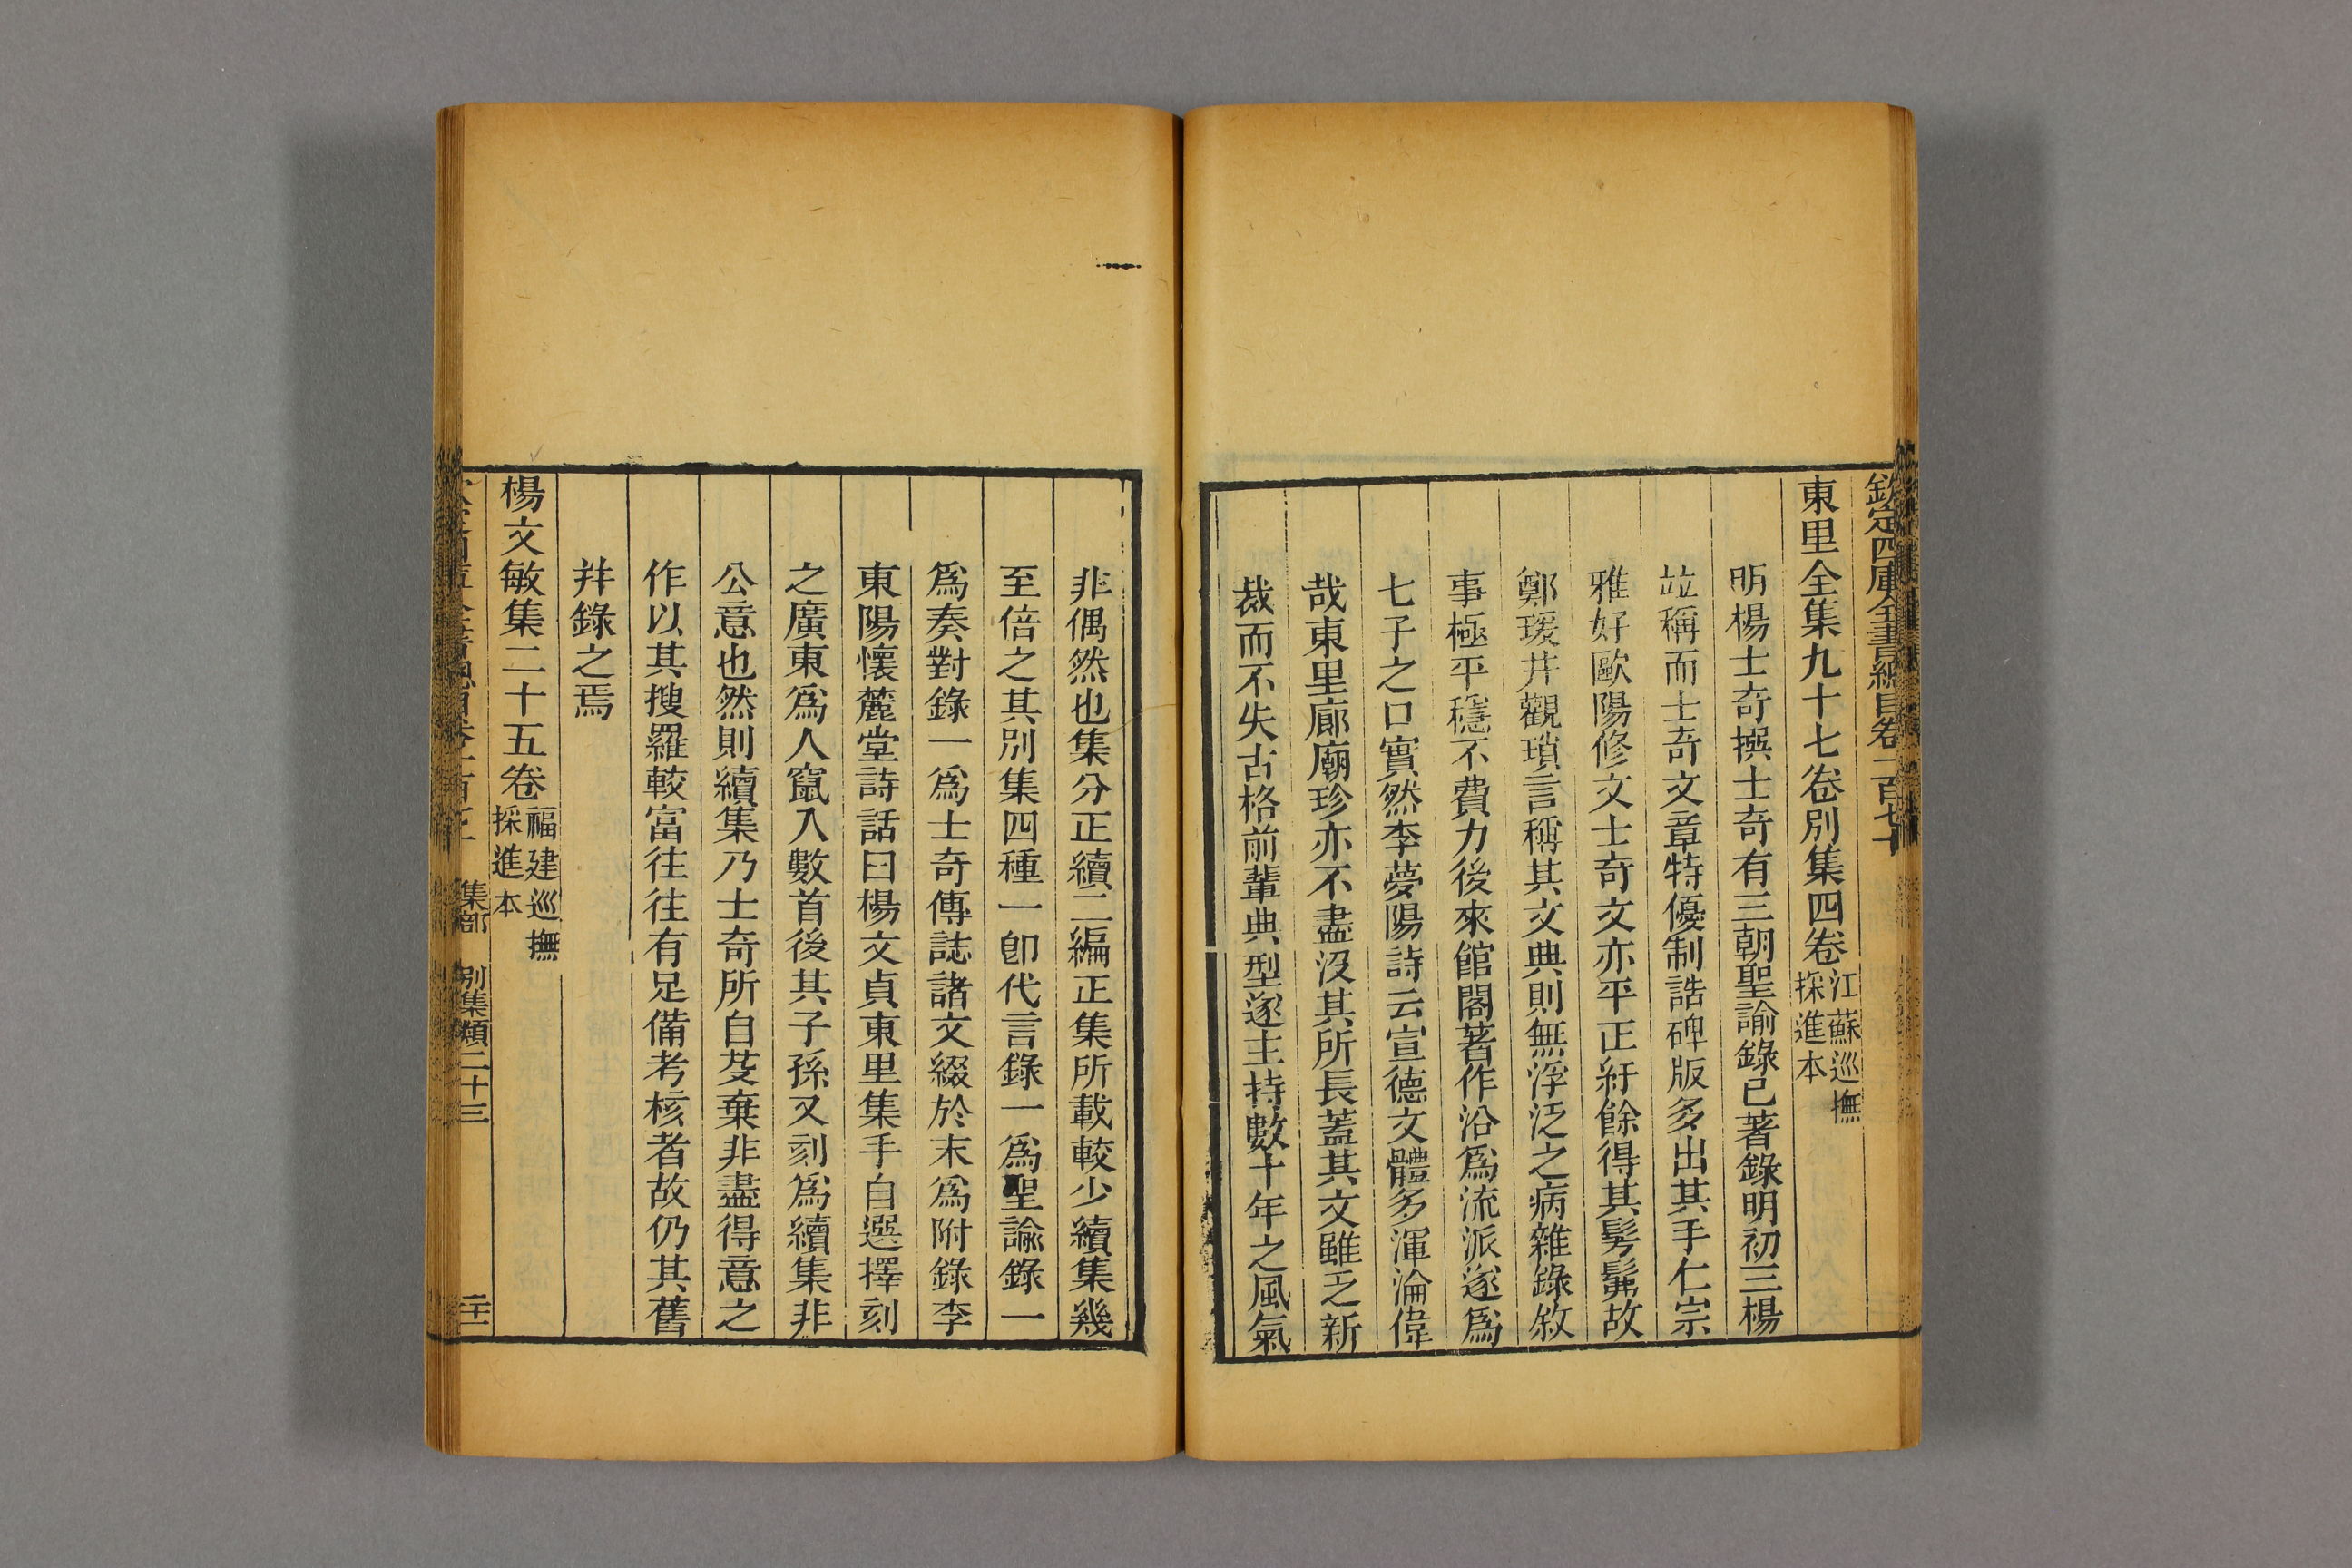 欽定四庫全書總目卷一百七十
東里全集九十七卷別集四卷江蘇巡撫採進本
明楊士奇撰士奇有三朝聖諭錄已著錄明初三楊
竝稱而士奇文章特優制誥碑版多出其手仁宗
雅好歐陽修文士奇文亦平正紆餘得其髣髴故
鄭瑗井觀瑣言稱其文典則無浮泛之病雜錄敘
事極平穩不費力後來館閣著作沿爲流派遂爲
七子之口實然李夢陽詩云宣德文體多渾淪偉
哉東里廊廟珍亦不盡沒其所長蓋其文雖乏新
裁而不失古格前輩典型遂主持數十年之風氣
非偶然也集分正續二編正集所載較少續集幾
至倍之其別集四種一卽代言錄一爲聖諭錄一
爲奏對錄一爲士奇傳誌諸文綴於末爲附錄李
東陽懷麓堂詩話曰楊文貞東里集手自選擇刻
之廣東爲人竄入數首後其子孫又刻爲續集非
公意也然則續集乃士奇所自芟棄非盡得意之
作以其搜羅較富往往有足備考核者故仍其舊
幷錄之焉
楊文敏集二十五卷福建巡撫採進本
集部 別集類二十三